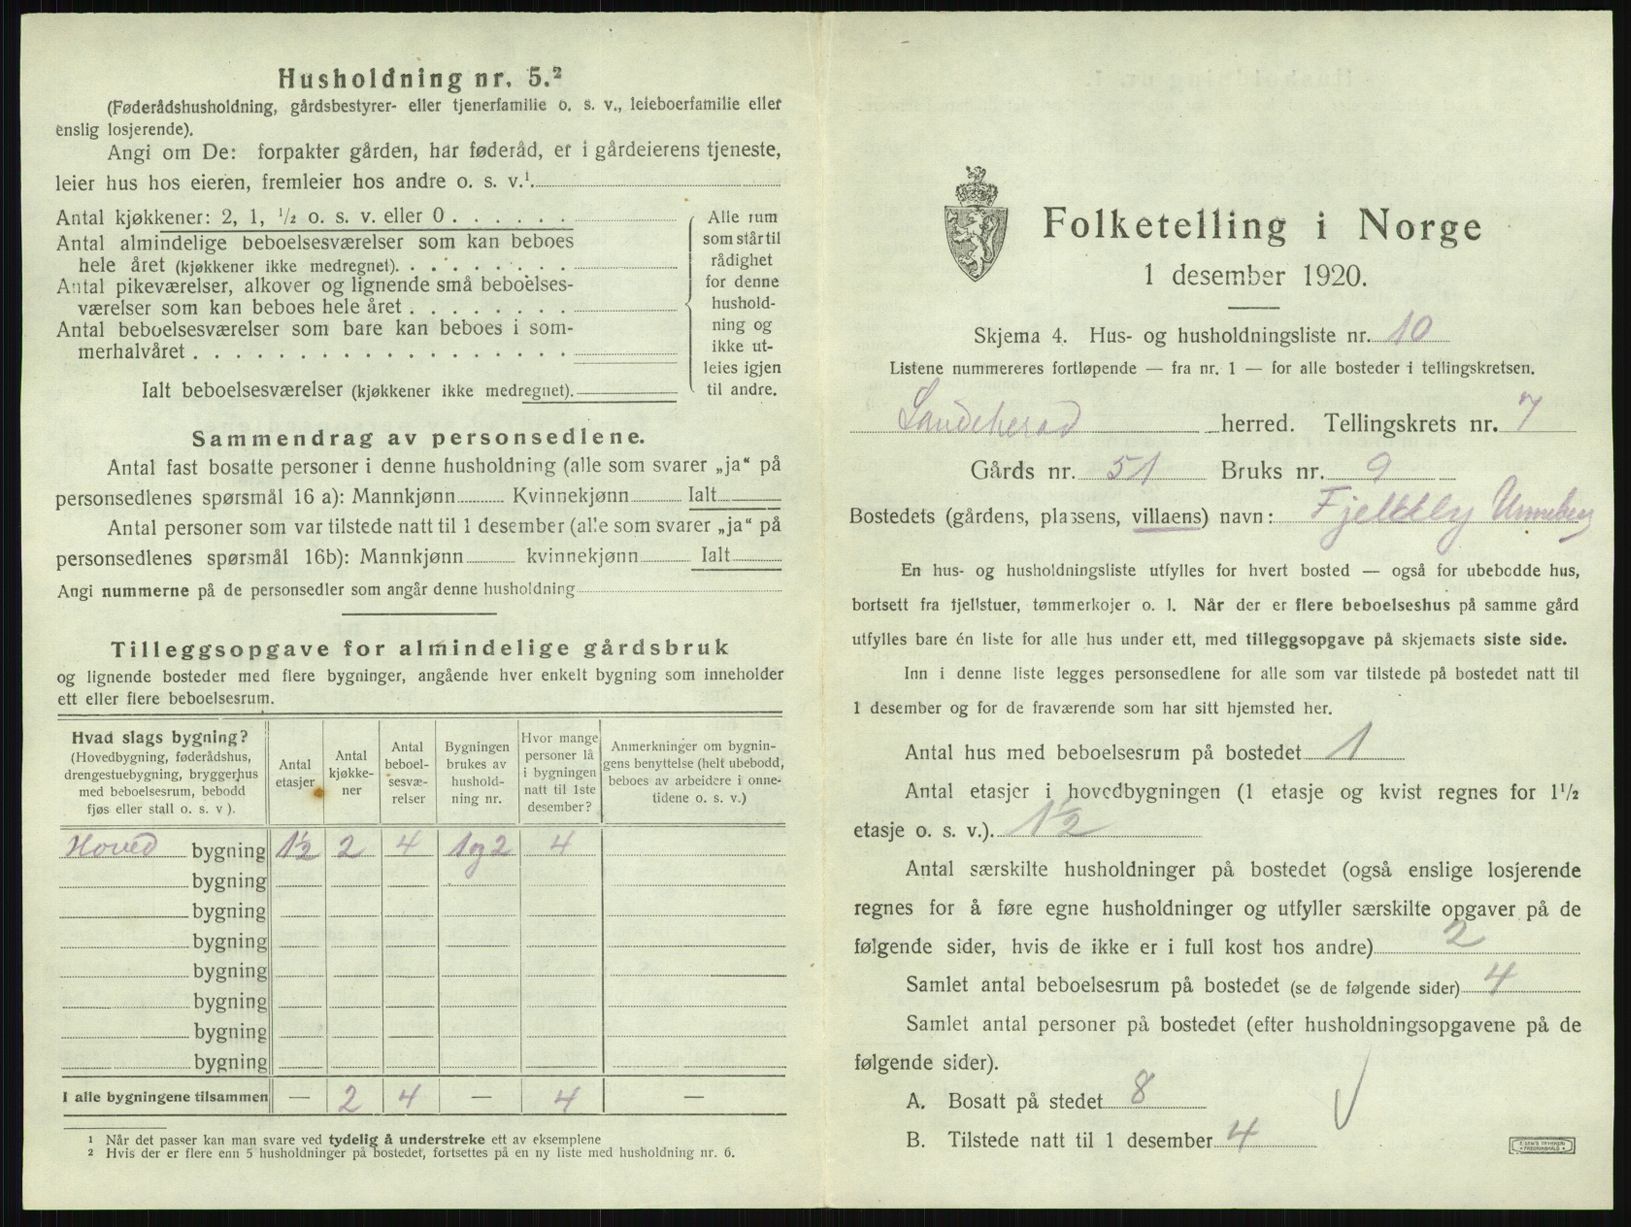 Husholdning nr. 5.²
(Føderådshusholdning, gårdsbestyrer- eller tjenerfamilie o. s. v., leieboerfamilie eller
enslig losjerende).
Angi om De: forpakter gården, har føderåd, er i gårdeierens tjeneste,
leier hus hos eieren, fremleier hos andre o. s. v.¹
Antal kjøkkener: 2, 1, ½ o. s. v. eller 0
Antal almindelige beboelsesværelser som kan beboes
hele året (kjøkkener ikke medregnet).
Antal pikeværelser, alkover og lignende små beboelses-
værelser som kan beboes hele året
Antal beboelsesværelser som bare kan beboes i som-
merhalvåret
Ialt beboelsesværelser (kjøkkener ikke medregnet).
Alle rum
som står til
rådighet
for denne
hushold-
ning og
ikke ut-
leies igjen
til andre.
Sammendrag av personsedlene.
Antal fast bosatte personer i denne husholdning (alle som svarer „ja“ på
personsedlenes spørsmål 16 a): Mannkjønn Kvinnekjønn Ialt
Antal personer som var tilstede natt til 1 desember (alle som svarer „ja“ på
personsedlenes spørsmål 16b): Mannkjønn kvinnekjønn Ialt
Angi nummerne på de personsedler som angår denne husholdning
Tilleggsopgave for almindelige gårdsbruk
og lignende bosteder med flere bygninger, angående hver enkelt bygning som inneholder
ett eller flere beboelsesrum.
Hvad slags bygning?
(Hovedbygning, føderådshus,
drengestuebygning, bryggerhus
med beboelsesrum, bebodd
fjøs eller stall o. s. v ).
Antal
etasjer
Antal
kjøkke-
ner
Antal
beboel-
sesvæ-
relser
Bygningen
brukes av
hushold-
ning nr.
Hvor mange
personer lå
i bygningen
natt til 1ste
desember?
Anmerkninger om bygnin-
gens benyttelse (helt ubebodd,
beboes av arbeidere i onne-
tidene o. s. v.)
Hoved bygning 1½ 2 4 1 og 2 4
bygning
bygning
bygning
bygning
bygning
bygning
bygning
I alle bygningene tilsammen — 2 4 — 4 —
¹ Når det passer kan man svare ved tydelig å understreke ett av eksemplene
² Hvis der er flere enn 5 husholdninger på bostedet, fortsettes på en ny liste med husholdning nr. 6.
Folketelling i Norge
1 desember 1920.
Skjema 4. Hus- og husholdningsliste nr. 10
Listene nummereres fortløpende — fra nr. 1 — for alle bosteder i tellingskretsen.
Sandeherad herred. Tellingskrets nr. 7
Gårds nr. 51 Bruks nr. 9
Bostedets (gårdens, plassens, villaens) navn: Fjellly Unneberg
En hus- og husholdningsliste utfylles for hvert bosted — også for ubebodde hus,
bortsett fra fjellstuer, tømmerkojer o. l. Når der er flere beboelseshus på samme gård
utfylles bare én liste for alle hus under ett, med tilleggsopgave på skjemaets siste side.
Inn i denne liste legges personsedlene for alle som var tilstede på bostedet natt til
1 desember og for de fraværende som har sitt hjemsted her.
Antal hus med beboelsesrum på bostedet 1
Antal etasjer i hovedbygningen (1 etasje og kvist regnes for 1½
etasje o. s. v.). 1½
Antal særskilte husholdninger på bostedet (også enslige losjerende
regnes for å føre egne husholdninger og utfyller særskilte opgaver på de
følgende sider, hvis de ikke er i full kost hos andre) 2
Samlet antal beboelsesrum på bostedet (se de følgende sider) 4
Samlet antal personer på bostedet (efter husholdningsopgavene på de
følgende sider).
A. Bosatt på stedet 8
B. Tilstede natt til 1 desember 4